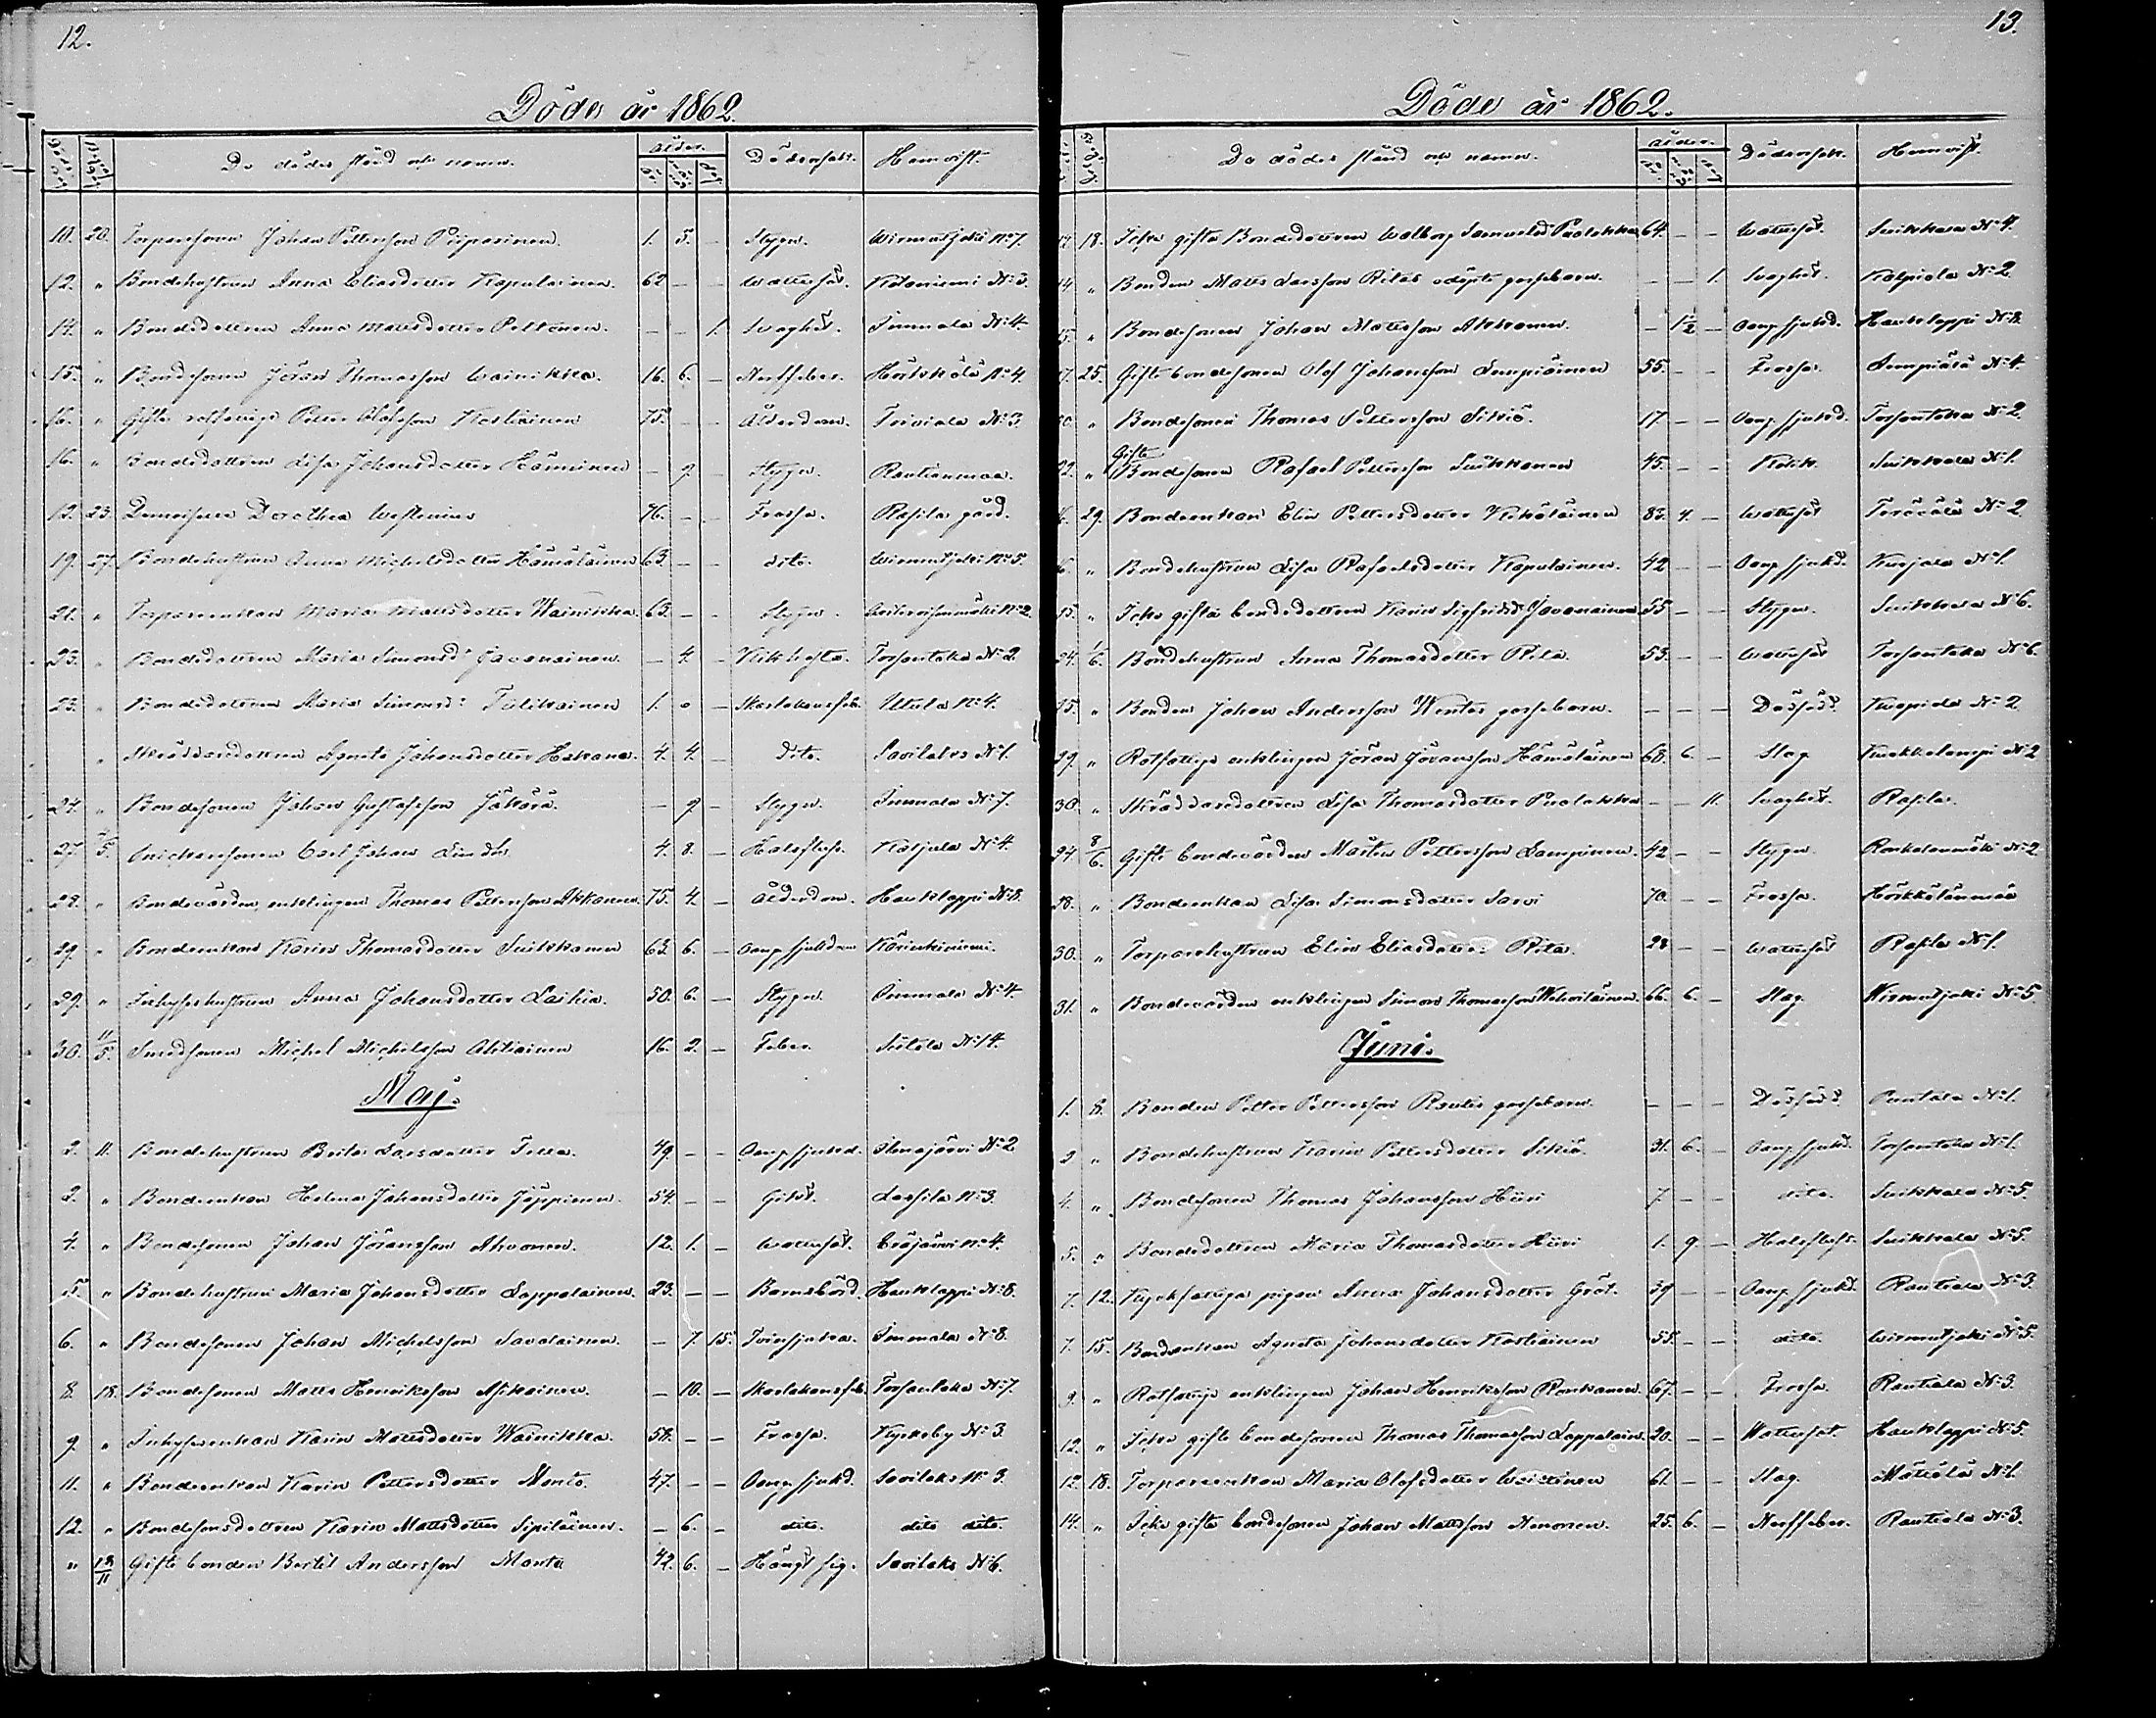 12.
Döde år 1862.
De dödes stånd och namn. ålder. Dödsorsak. Hemvist.
10. 20. Torparesonen Johan Pettersson Piiparinen. 1. 5. – Stygn. Wirmutjoki No 7.
12. " Bondehustrun Anna Eliasdotter Kapulainen. 62 – – Wattusot. Kotaniemi No 3.
14. " Bondedottren Anna Mattsdotter Peltonen. – – 1. Svaghet. Immala No 4.
15. " Bondesonen Jöran Thomasson Wainikka. 16. 6. – Nerffeber. Härskälä No 4.
16. " Gifte rotfattige Petter Olofsson Kostiainen 75. – – Ålderdom. No 3.
16. " Bondedottren Lisa Johansdotter Hänninen – 9. – Stygn. Rautianmaa.
12. 23. Demoiselle Dorothea Weslenius 76. – – Frossa. Rasila gård.
19. 27. Bondehustrun Anna Michelsdotter Hämäläinen 63. – – dito. Wirmutjoki No 5.
21. " Torpareenkan Maria Mattsdotter Wainikka. 63. – – Stygn. No 2.
23. " Bondedottren Maria Simonsd: Javanainen. – 4. – Kikhosta. Torsantaka No 2.
23. " Bondedottren Maria Simonsd: Tulikainen 1. 0 – Skarlakansfeb. Ukula No 4.
" Skräddaredottren Agneta Johansdotter Hakana. 4. 4. – dito. Savilaks No 1.
24. " Bondesonen Johan Gustafsson Jäkärä. – 9 – Stygn. Immala No 7.
27. 4/5. Carl Johan Lindh. 4. 8. – Halsfluss. Karjula No 4.
28. " Bondevärden, enklingen Thomas Pettersson Akkanen. 75. 4. – Ålderdom. Haukloppi No 8.
29. " Bondeenkan Karin Thomasdotter Suikkanen 63. 6. – Oang. sjukdom Kärinkiniemi.
29. " Inhyseshustrun Anna Johansdotter Laihia. 50. 6. – Stygn. Immala No 4.
30. 11/5. Smedsonen Michel Michelsson Ahtiainen 16. 2. – Feber. Siitola No 14.
Maj.
2. 11. Bondehustrun Beata Larsdotter Tella. 49. – – Oang. sjukd. Ilmajärvi No 2
3. " Bondeenkan Helena Johansdotter Jäppinen. 54. – – Gikt. Lassila No 3.
4. " Bondesonen Johan Jöransson Ahvonen. 12. 1. – Wattusot. Eräjärvi No 4.
5 " Bondehustrun Maria Johansdotter Lappalainen. 23. – – Barnsbörd. Haukloppi No 8.
6. " Bondesonen Johan Michelsson Savolainen. – 7. 15. Tvinsjuka. Immala No 8.
8. 18. Bondesonen Matts Henriksson Asikainen. – 10. – Skarlakansfeb. Torsantaka No 7.
9. " Inhysesenkan Karin Mattsdotter Wainikka. 58. – – Frossa. Kyrkoby No 3.
11. " Bondeenkan Karin Pettersdotter Monto. 47. – – Oang. sjukd. Savilaks No 3.
12. " Bondesonsdottren Karin Mattsdotter Sipiläinen. – 6. – dito. dito dito.
" 18/11 Gifte bonden Bertil Andersson Monto 42. 6. – Hängt sig. Savilaks No 6.
13.
Döde år 1862.
De dödes stånd och namn. ålder. Dödsorsak. Hemvist.
18. Icke gifta Bondedottren Walborg Samuelsd: Puolakka 64. – – Wattusot. Suikkala No 4.
14 " Bonden Matts Larsson Ritas odöpte gossebarn. – – 1. Svaghet. Kalpiala No 2.
15. " Bondesonen Johan Mattsson Akkanen. – 1½ – Oang. sjukd. Haukloppi No 8.
17. 25. Gifte bondesonen Olof Johansson Lumpiainen 55. – – Frossa. No 4.
20. " Bondesonen Thomas Pettersson Sikiö. 17. – – Oang. sjukd. Torsantaka No 2.
22. " Gifte Bondesonen Rafael Pettersson Suikkanen 45. – – Kolik. Suikkala No 1.
29. Bondeenkan Elin Pettersdotter 83. 4. – Wattusot No 2.
" Bondehustrun Lisa Rafaelsdotter Kapulainen. 42 – – Oang. sjukd. Kurjala No 1.
15. " Icke gifta bondedottren Karin Sigfridsd: Javanainen 55 – – Stygn. Suikkala No 6.
24. 1/6. Bondehustrun Anna Thomasdotter Rita. 53. – – Wattusot Torsantaka No 6.
25. " Bonden Johan Andersson Wentos gossebarn. – – – Dödfödd. No 2
29. " Rotfattige enklingen Jöran Jöransson Hämäläinen 68. 6. – Slag No 2
30. " Skräddaredottren Lisa Thomasdotter Puolakka – – 11. Svaghet. Rasila.
24. 8/6. Gifte bondevärden Mårten Pettersson Lampinen. 42 – – Stygn. No 2
28. " Bondeenkan Lisa Simonsdotter Sarvi 70. – – Frossa. Härskiänmaa
30. " Torparehustrun Elin Eliasdotter Rita. 28 – – Wattusot Rasila No 1.
31. " Bondevärden enklingen Simon Thomasson Wehviläinen. 66. 6. – Slag. Wirmutjoki No 5
Juni.
1. 8. Bonden Petter Pettersson Rautis gossebarn. – – – Dödfödd. No 1.
3 " Bondehustrun Karin Pettersdotter Sikiö. 31. 6. – Oang. sjukd. Torsantaka No 1.
4. " Bondesonen Thomas Johansson Hiiri 7. – – dito. Suikkala No 5.
5. " Bondedottren Maria Thomasdotter Hiiri 1. 9. – Halsflusst. Suikkala No 5.
7. 12. Kyrkfattiga pigan Anna Johansdotter Gröt. 39 – – Oang. sjukd. Rautiala No 3.
7. 15. Bondeenkan Agneta Johansdotter Kostiainen 55. – – dito. Wirmutjoki No 5.
9. " Rotfattige enklingen Johan Henriksson Ronkanen. 67. – – Frossa. Rautiala No 3.
12. " Icke gifte bondesonen Thomas Thomasson Lappalain. 20. – – Wattusot. Haukloppi No 5.
12. 18. Torpareenkan Maria Olofsdotter 61 – – Slag. Mättälä No 1.
14. " Icke gifte bondesonen Johan Mattsson Nenonen. 25. 6. – Nerffeber. Rautiala No 3.